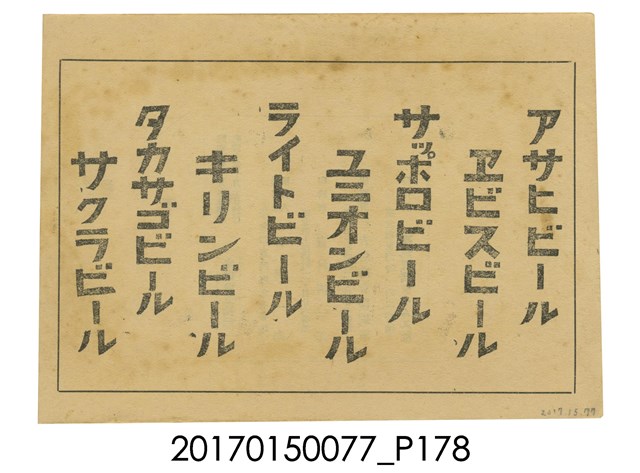 アサヒビール
ヱビスビール
サッポロビール
ユニオンビール
ライトビール
キリンビール
タカサゴビール
サクラビール
20170150077_P178